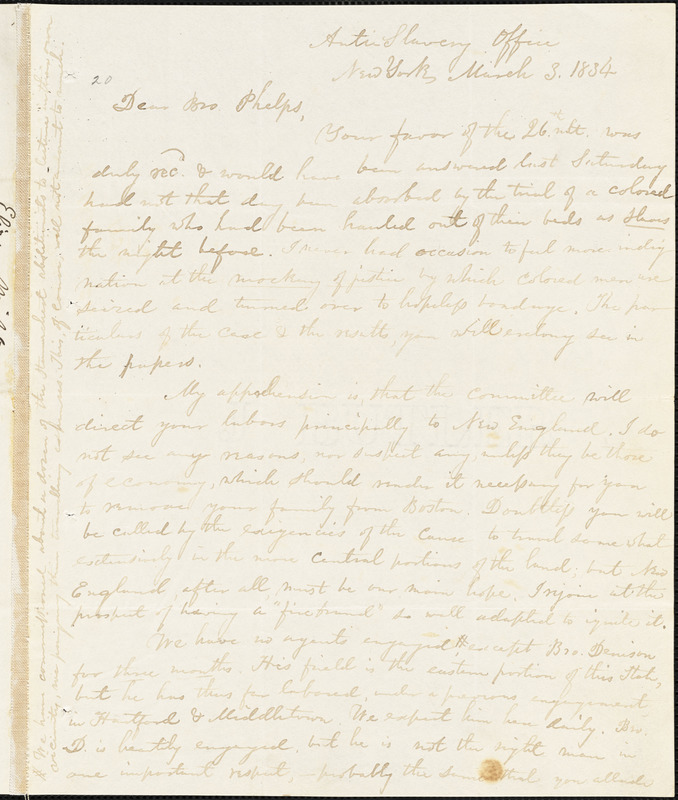 Anti-Slavery Office
New York, March 3. 1834
20
Dear Bro. Phelps,
Your favor of the 26th. ult. was
duly recd. & would have been answered last Saturday
had not that day been absorbed by the trial of a colored
family who had been hauled out of their beds as slaves
the night before. I never had occasion to feel more indig
nation at the mockery of justice by which colored men are
seized and turned over to hopeless bondage. The par
ticulars of the case & the results, you will erelong see in
the papers.
My apprehension is, that the Committee will
direct your labors principally to New England. I do
not see any reasons, nor suspect any, unless they be those
of economy, which should render it necessary for you
to remove your family from Boston. Doubtless you will
be called by the exigencies of the cause to travel somewhat
extensively in the more central portions of the land; but New
England, after all, must be our main hope. I rejoice at the
prospect of having a "fire brand" so well adapted to ignite it.
We have no agents engaged # except Bro. Denison
for three months. His field is the eastern portion of this State,
but he has thus far labored, under a previous engagement
in Hartford & Middletown. We expect him here daily. Bro.
D. is heartily engaged, but he is not the right man in
one important respect, – probably the same that you allude
# We have commissioned about a dozen of the staunchest abolitionists to lecture in their own
vicinity, we paying their travelling expenses. This, of course, will not amount to much.